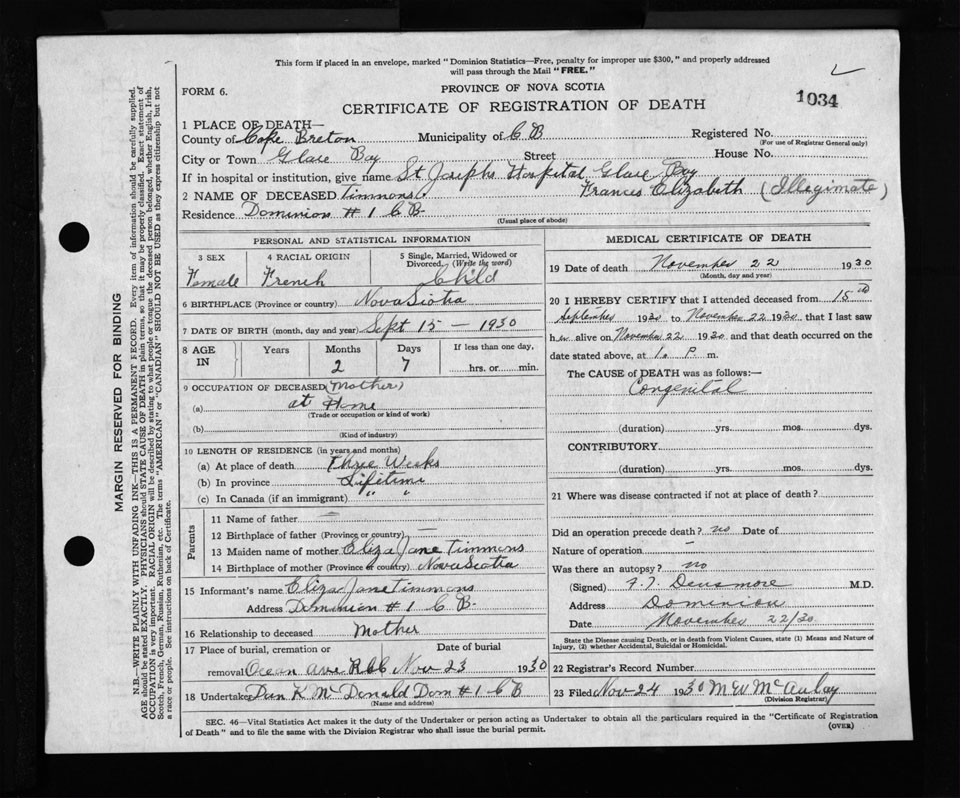 This form if placed in an envelope, marked "Dominion Statistics—Free, penalty for improper use $300," and properly addressed
will pass through the Mail "FREE."
FORM 6.
PROVINCE OF NOVA SCOTIA
CERTIFICATE OF REGISTRATION OF DEATH
1034
1 PLACE OF DEATH—
County of Cape Breton Municipality of C B Registered No.
(For use of Registrar General only)
City or Town Glace Bay Street House No.
If in hospital or institution, give name St Josephs Hospital Glace Bay
2 NAME OF DECEASED Timmons Frances Elizabeth (Illegimate)
Residence Dominion # 1 C B
(Usual place of abode)
PERSONAL AND STATISTICAL INFORMATION
3 SEX 4 RACIAL ORIGIN 5 Single, Married, Widowed or Divorced. (Write the word)
Female French Child
6 BIRTHPLACE (Province or country) Nova Siotia
7 DATE OF BIRTH (month, day and year) Sept 15 — 1930
8 AGE IN Years Months Days If less than one day,
2 7 hrs. or min.
9 OCCUPATION OF DECEASED (Mother)
(a) at Home
(Trade or occupation or kind of work)
(b)
(Kind of industry)
10 LENGTH OF RESIDENCE (in years and months)
(a) At place of death Three Weeks
(b) In province Lifetime
(c) In Canada (if an immigrant) " "
Parents
11 Name of father —
12 Birthplace of father (Province or country) —
13 Maiden name of mother Eliza Jane Timmons
14 Birthplace of mother (Province or country) Nova Siotia
15 Informant's name Eliza Jane Timmons
Address Dominion # 1 C B
16 Relationship to deceased Mother
17 Place of burial, cremation or Date of burial
removal Ocean Ave Nov 23 1930
18 Undertaker Dan K McDonald Dom # 1 C B
(Name and address)
MEDICAL CERTIFICATE OF DEATH
19 Date of death November 22 1930
(Month, day and year)
20 I HEREBY CERTIFY that I attended deceased from 15th
September 1930 to November 22 1930 that I last saw
her alive on November 22 1930 and that death occurred on the
date stated above, at 1. P. m.
The CAUSE of DEATH was as follows:—
Congenital
(duration) yrs. mos. dys.
CONTRIBUTORY
(duration) yrs. mos. dys.
21 Where was disease contracted if not at place of death?
Did an operation precede death? no Date of
Nature of operation —
Was there an autopsy? no
(Signed) Densmore M.D.
Address Dominion
Date November 22/30
State the Disease causing Death, or in death from Violent Causes, state (1) Means and Nature of
Injury, (2) whether Accidental, Suicidal or Homicidal.
22 Registrar's Record Number
23 Filed Nov 24 1930 M W McAulay
(Division Registrar)
SEC. 46—Vital Statistics Act makes it the duty of the Undertaker or person acting as Undertaker to obtain all the particulars required in the "Certificate of Registration
of Death" and to file the same with the Division Registrar who shall issue the burial permit.
(OVER)
MARGIN RESERVED FOR BINDING
N.B.—WRITE PLAINLY WITH UNFADING INK—THIS IS A PERMANENT RECORD. Every item of information should be carefully supplied.
AGE should be stated EXACTLY. PHYSICIANS should STATE CAUSE OF DEATH in plain terms, so that it may be properly classified. Exact statement of
OCCUPATION is very important. RACIAL ORIGIN will be described by stating to what people or tongue the deceased person belonged, whether English, Irish,
Scotch, French, German, Russian, Ruthenian, etc. The terms "AMERICAN" or "CANADIAN" SHOULD NOT BE USED as they express citizenship but not
a race or people. See instructions on back of Certificate.